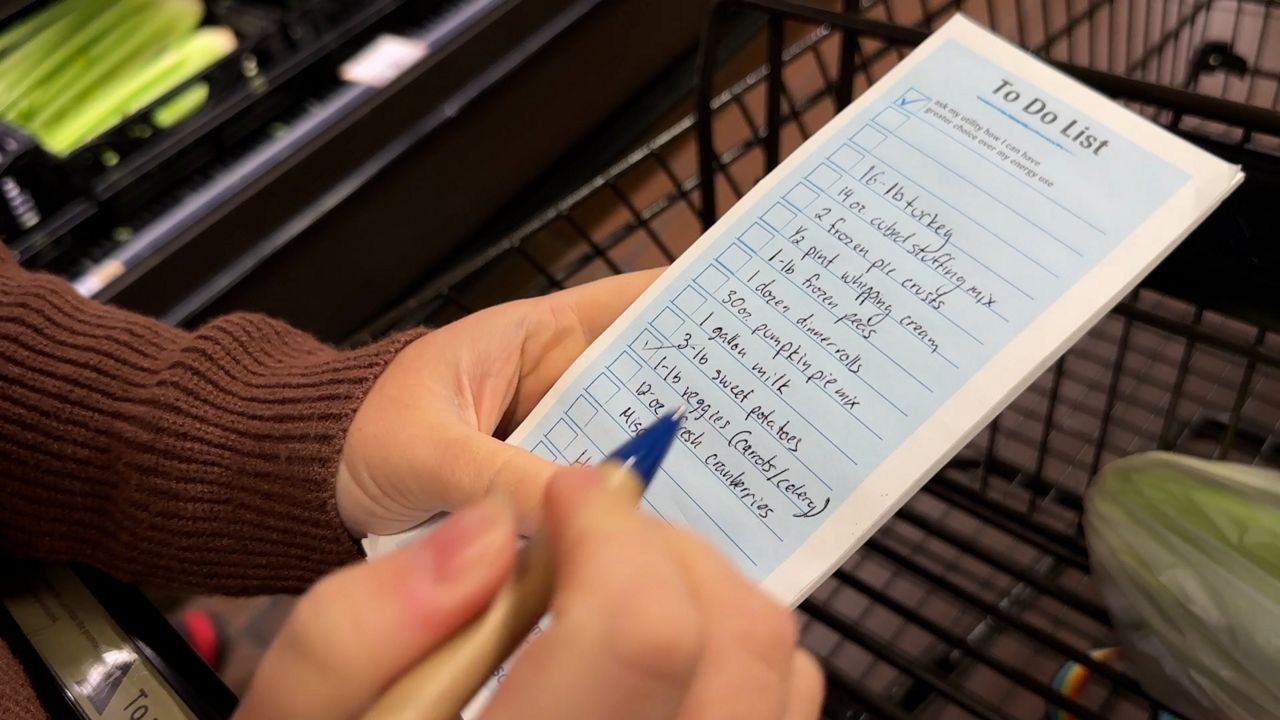 To Do List
ask my utility how I can have
greater choice over my energy use
16-lb turkey
14 oz. cubed stuffing mix
2 frozen pie crusts
½ pint whipping cream
1-lb frozen peas
1 dozen dinner rolls
30oz pumpkin pie mix
1 gallon milk
3-lb sweet potatoes
1-lb veggies (carrots/celery)
12-oz fresh cranberries
Misc